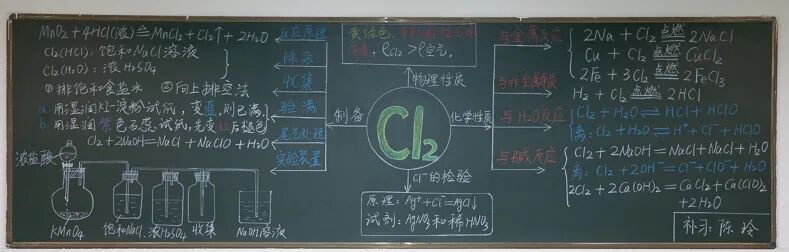 MnO₂ + 4HCl(浓) ≜ MnCl₂ + Cl₂↑ + 2H₂O
Cl₂(HCl): 饱和NaCl溶液
Cl₂(H₂O): 浓H₂SO₄
① 排饱和食盐水 ② 向上排空法
a. 用湿润KI-淀粉试纸, 变蓝, 则已满
b. 用湿润紫色石蕊试纸, 先变红后褪色
Cl₂ + 2NaOH = NaCl + NaClO + H₂O
反应原理
除杂
收集
验满
尾气处理
实验装置
制备
浓盐酸
KMnO₄
饱和NaCl
浓H₂SO₄
收集
NaOH溶液
黄绿色
ρCl₂ > ρ空气
物理性质
Cl₂
化学性质
Cl⁻的检验
原理: Ag⁺ + Cl⁻ = AgCl↓
试剂: AgNO₃ 和 稀HNO₃
与金属反应
2Na + Cl₂ 点燃 2NaCl
Cu + Cl₂ 点燃 CuCl₂
2Fe + 3Cl₂ 点燃 2FeCl₃
与非金属反应
H₂ + Cl₂ 点燃 2HCl
与H₂O反应
Cl₂ + H₂O ⇌ HCl + HClO
离: Cl₂ + H₂O ⇌ H⁺ + Cl⁻ + HClO
与碱反应
Cl₂ + 2NaOH = NaCl + NaClO + H₂O
离: Cl₂ + 2OH⁻ = Cl⁻ + ClO⁻ + H₂O
2Cl₂ + 2Ca(OH)₂ = CaCl₂ + Ca(ClO)₂
+ 2H₂O